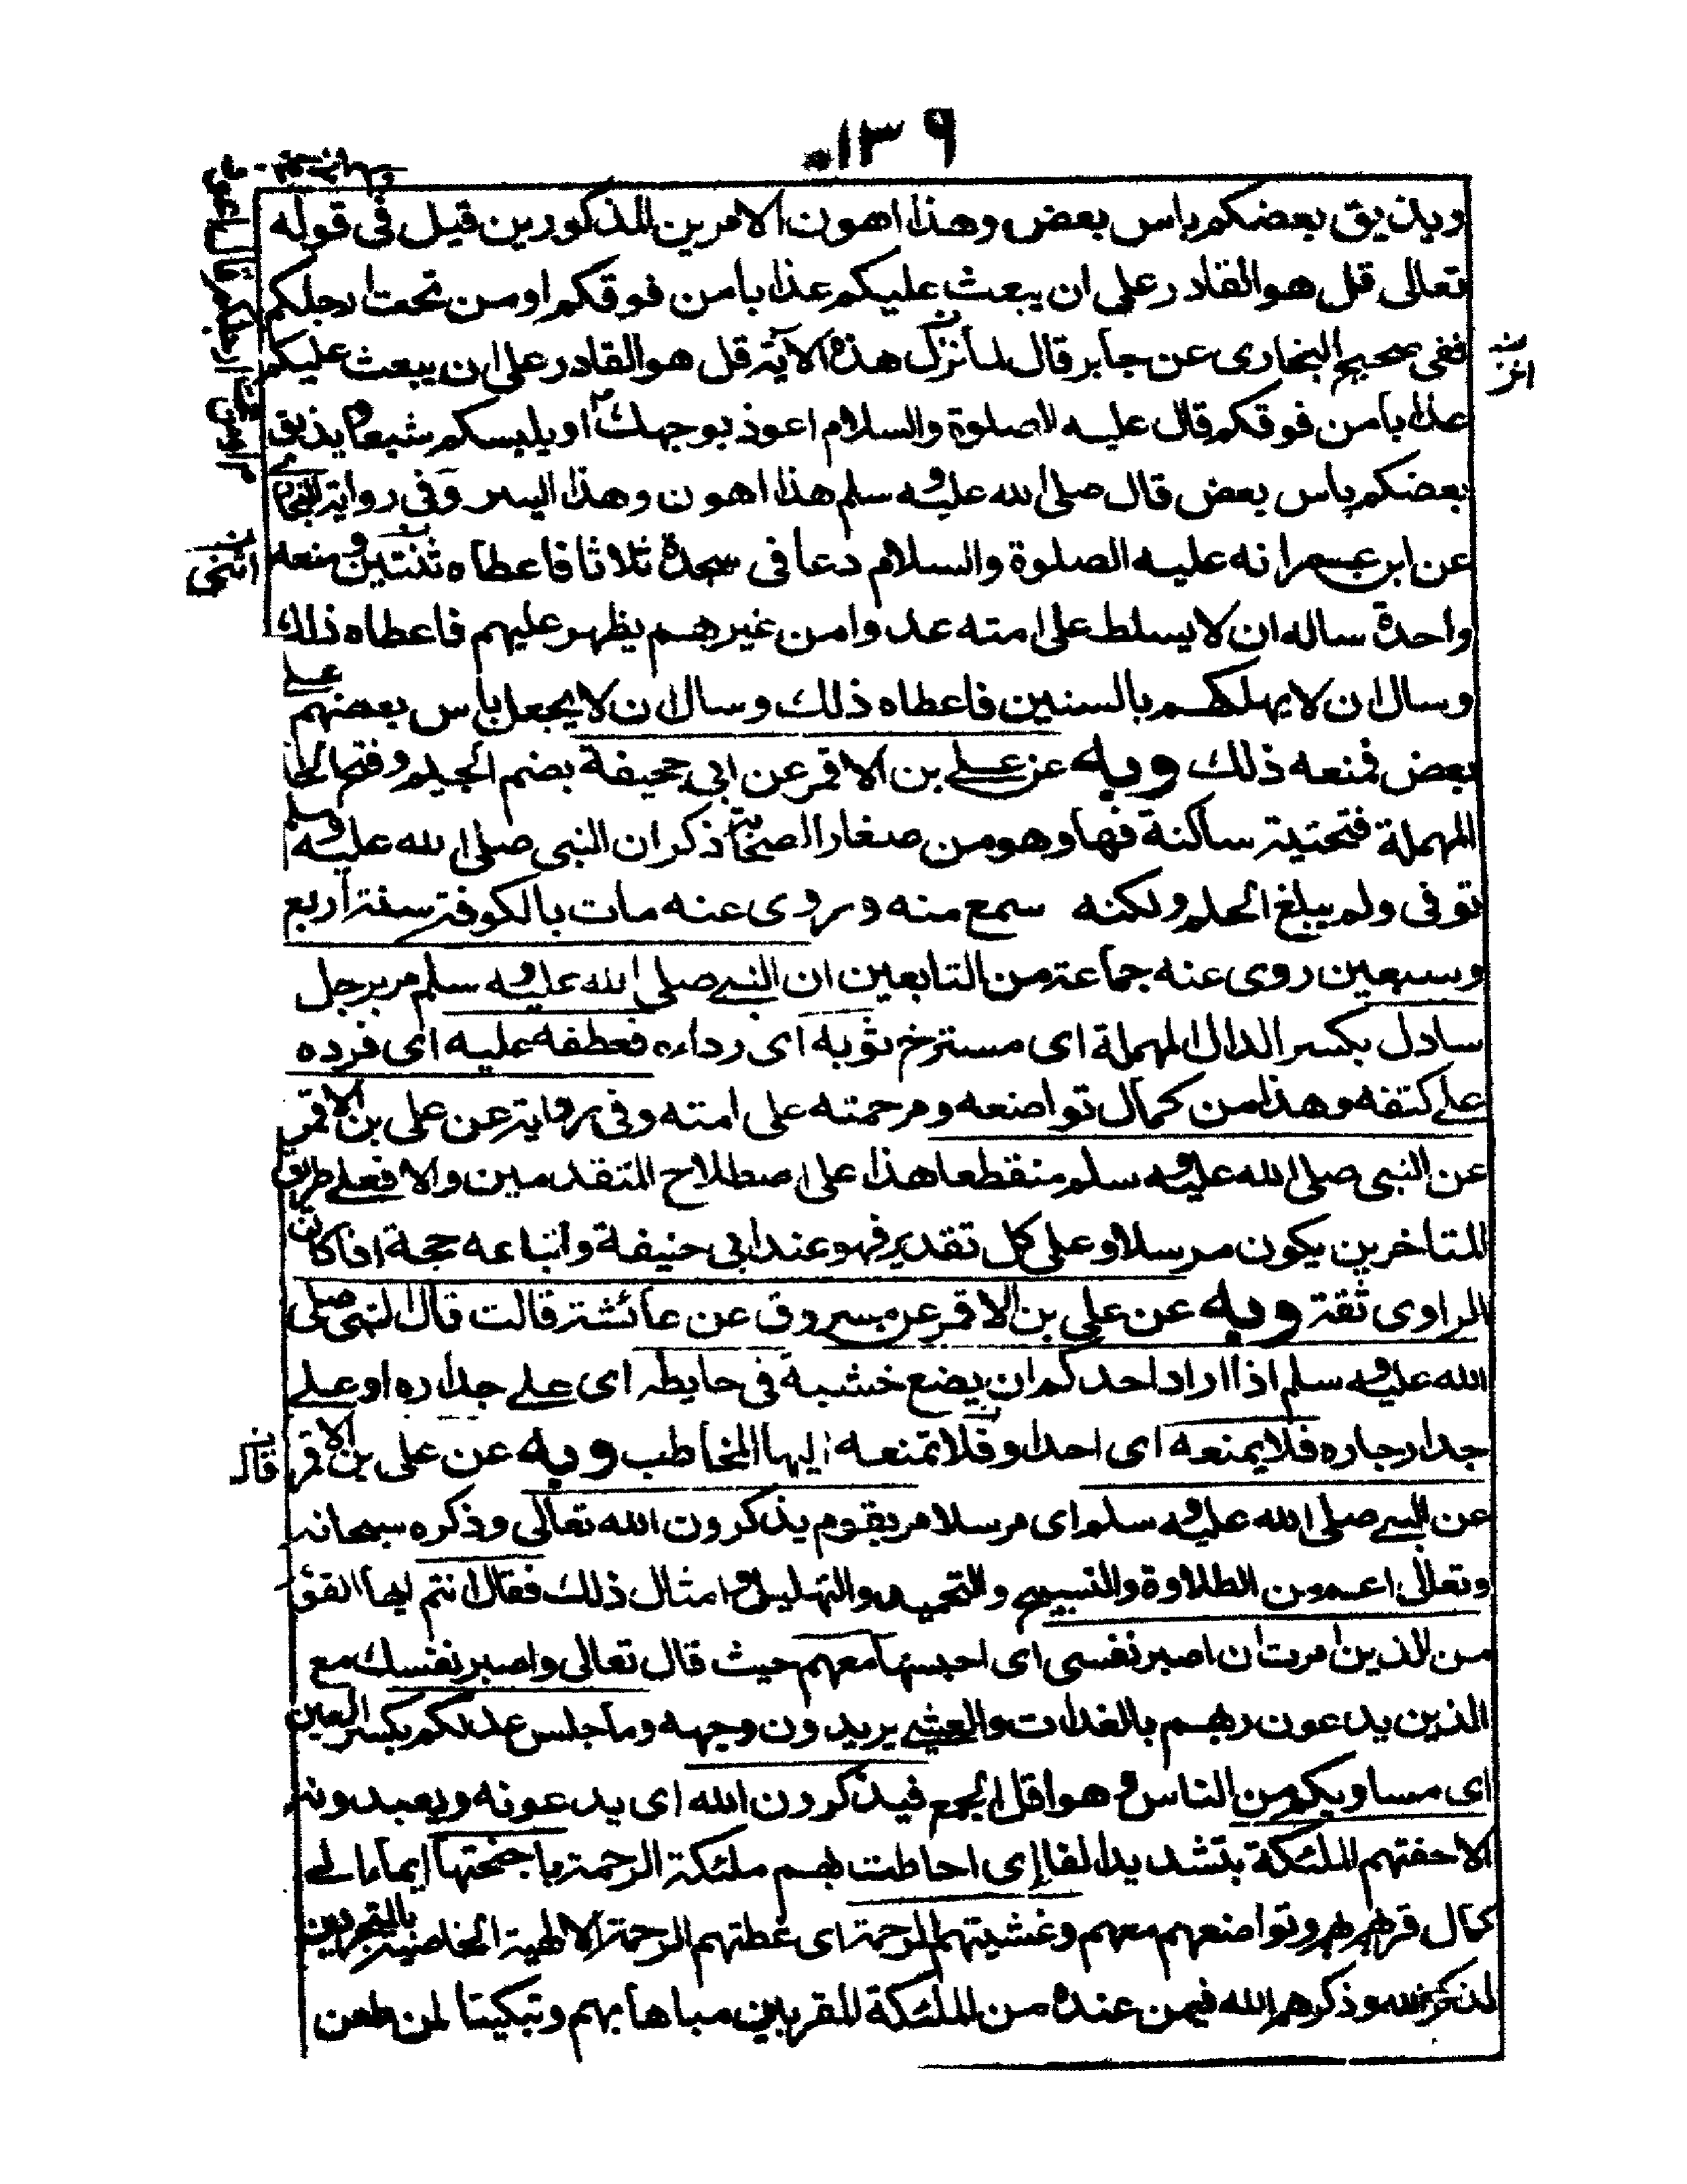 ١٣٩
ويذيق بعضكم باس بعض وهذا اهون الامرين المذكورين قيل فى قوله
تعالى قل هو القادر على ان يبعث عليكم عذابا من فوقكم او من تحت ارجلكم
ففى صحيح البخارى عن جابر قال لما نزل هذه الآية قل هو القادر على ان يبعث عليكم
عذابا من فوقكم قال عليه الصلوة والسلام اعوذ بوجهك او يلبسكم شيعا ويذيق
بعضكم باس بعض قال صلى الله عليه وسلم هذا اهون وهذا ايسر وفى رواية
عن ابن عمر انه عليه الصلوة والسلام دعا فى سجدة ثلاثا فاعطاه ثنتين ومنعه
واحدة ساله ان لا يسلط على امته عدوا من غيرهم يظهر عليهم فاعطاه ذلك
وسال ان لا يهلكهم بالسنين فاعطاه ذلك وسال ان لا يجعل باس بعضهم على
بعض فمنعه ذلك وبه عن على بن الاقمر عن ابى جحيفة بضم الجيم وفتح الحا
المهملة فتحتية ساكنة ففا وهو من صغار الصحابة ذكر ان النبى صلى الله عليه وسلم
توفى ولم يبلغ الحلم ولكنه سمع منه وروى عنه مات بالكوفة سنة اربع
وسبعين روى عنه جماعة من التابعين ان النبى صلى الله عليه وسلم مر برجل
سادل بكسر الدال المهملة اى مسترخ ثوبه اى رداءه فعطفه عليه اى فرده
على كتفه وهذا من كمال تواضعه ومرحمته على امته وفى رواية عن على بن الاقمر
عن النبى صلى الله عليه وسلم منقطعا هذا على اصطلاح المتقدمين والا فعلى طريق
المتاخرين يكون مرسلا وعلى كل تقدير فهو عند ابى حنيفة واتباعه حجة اذا كان
الراوى ثقة وبه عن على بن الاقمر عن مسروق عن عائشة قالت قال النبى صلى
الله عليه وسلم اذا اراد احدكم ان يضع خشبة فى حايطه اى على جداره او على
جدار جاره فلا يمنعه اى احد او فلا تمنعه ايها المخاطب وبه عن على بن الاقمر
عن النبى صلى الله عليه وسلم اى مرسلا مر بقوم يذكرون الله تعالى وذكره سبحانه
وتعالى اعم من الطلاوة والتسبيح والتحميد والتهليل وامثال ذلك فقال انتم ايها القوم
من الذين امرت ان اصبر نفسى اى احبسها معهم حيث قال تعالى واصبر نفسك مع
الذين يدعون ربهم بالغدات والعشى يريدون وجهه وما جلس عدلكم بكسر العين
اى مساويكم من الناس وهو اقل الجمع فيذكرون الله اى يدعونه ويعبدونه
الا حفتهم الملئكة بتشديد الفا اى احاطت بهم ملئكة الرحمة باجنحتها ايماء الى
كمال قربهم وتواضعهم معهم وغشيتهم الرحمة اى غطتهم الرحمة الالهية الخاصة بالتجردين
لذكر الله وذكرهم الله فيمن عنده من الملئكة المقربين مباها بهم وتبكيتا لمن طعن